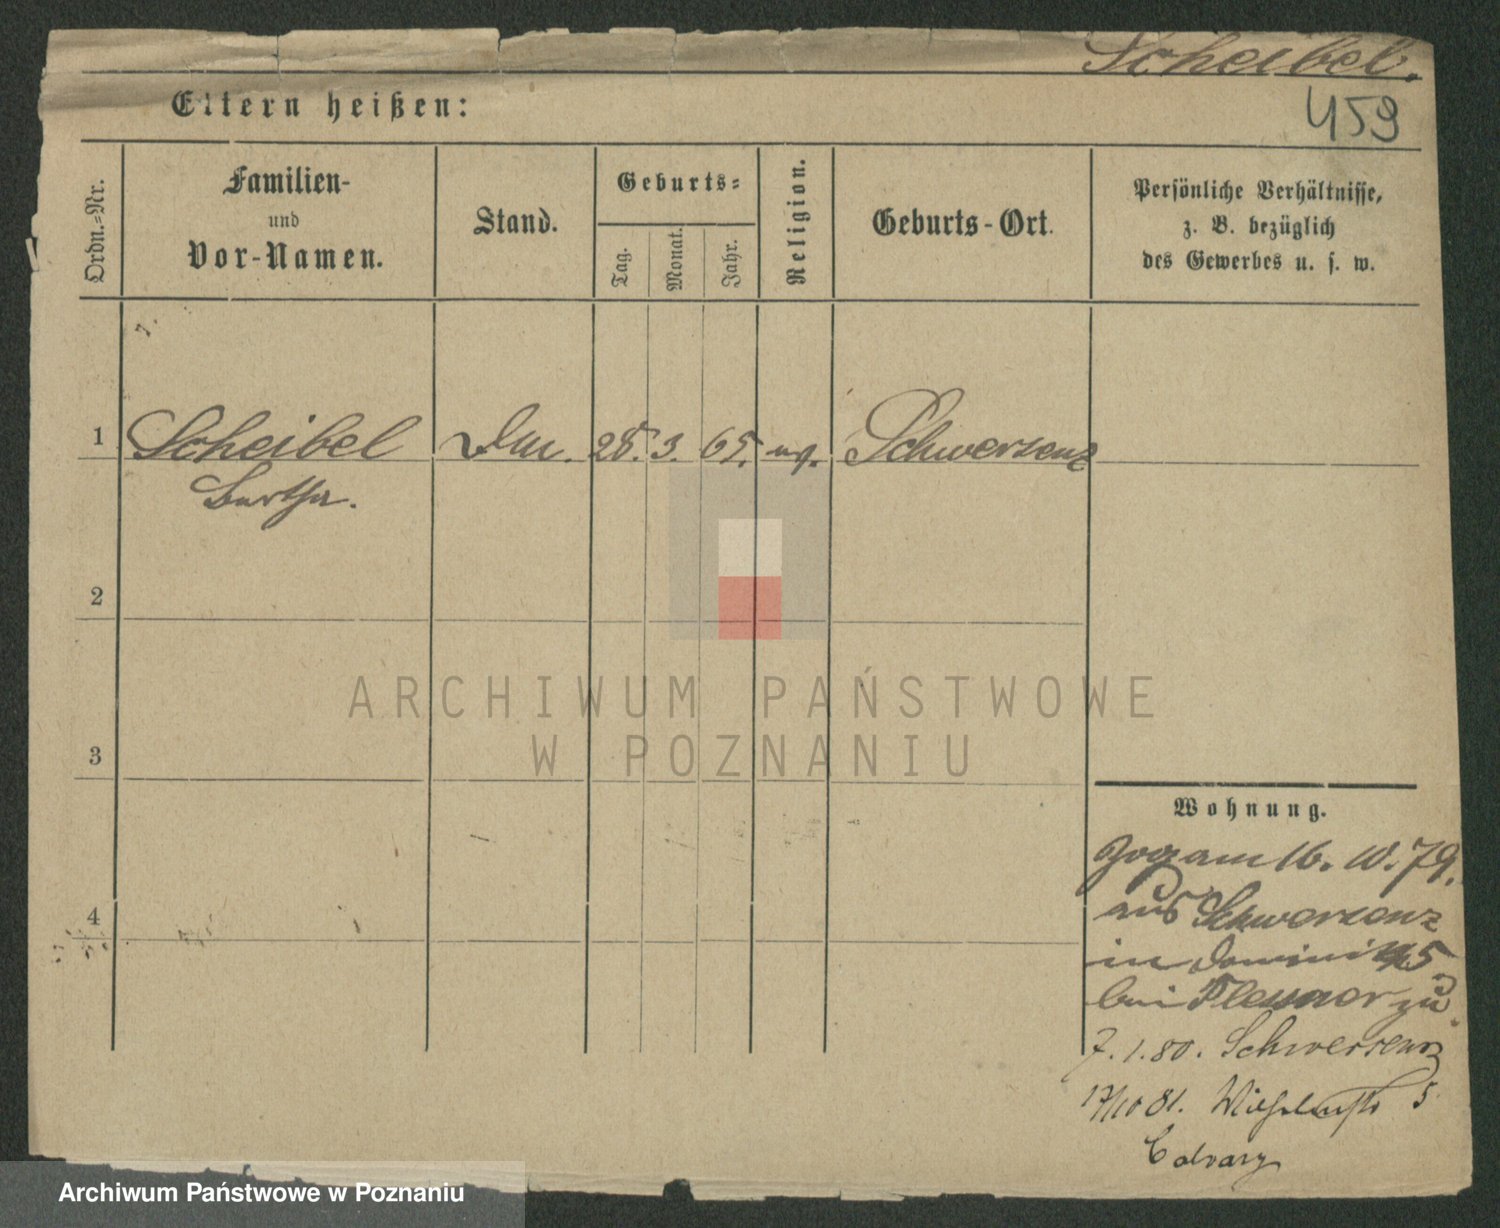 Scheibel.
459
Eltern heißen:
Ordn.-Nr.
Familien-
und
Vor-Namen.
Stand.
Geburts-
Tag.
Monat.
Jahr.
Religion.
Geburts-Ort.
Persönliche Verhältnisse,
z. B. bezüglich
des Gewerbes u. s. w.
1 Scheibel 28. 3. 65. Schwersenz
Bertha.
2
3
4
ARCHIWUM PAŃSTWOWE
W POZNANIU
Wohnung.
Zog am 16. 10. 79.
aus Schwersenz
in
bei zu
7. 1. 80. Schwersenz
17/10 81. Wilhelmstr 5
Calvary
Archiwum Państwowe w Poznaniu